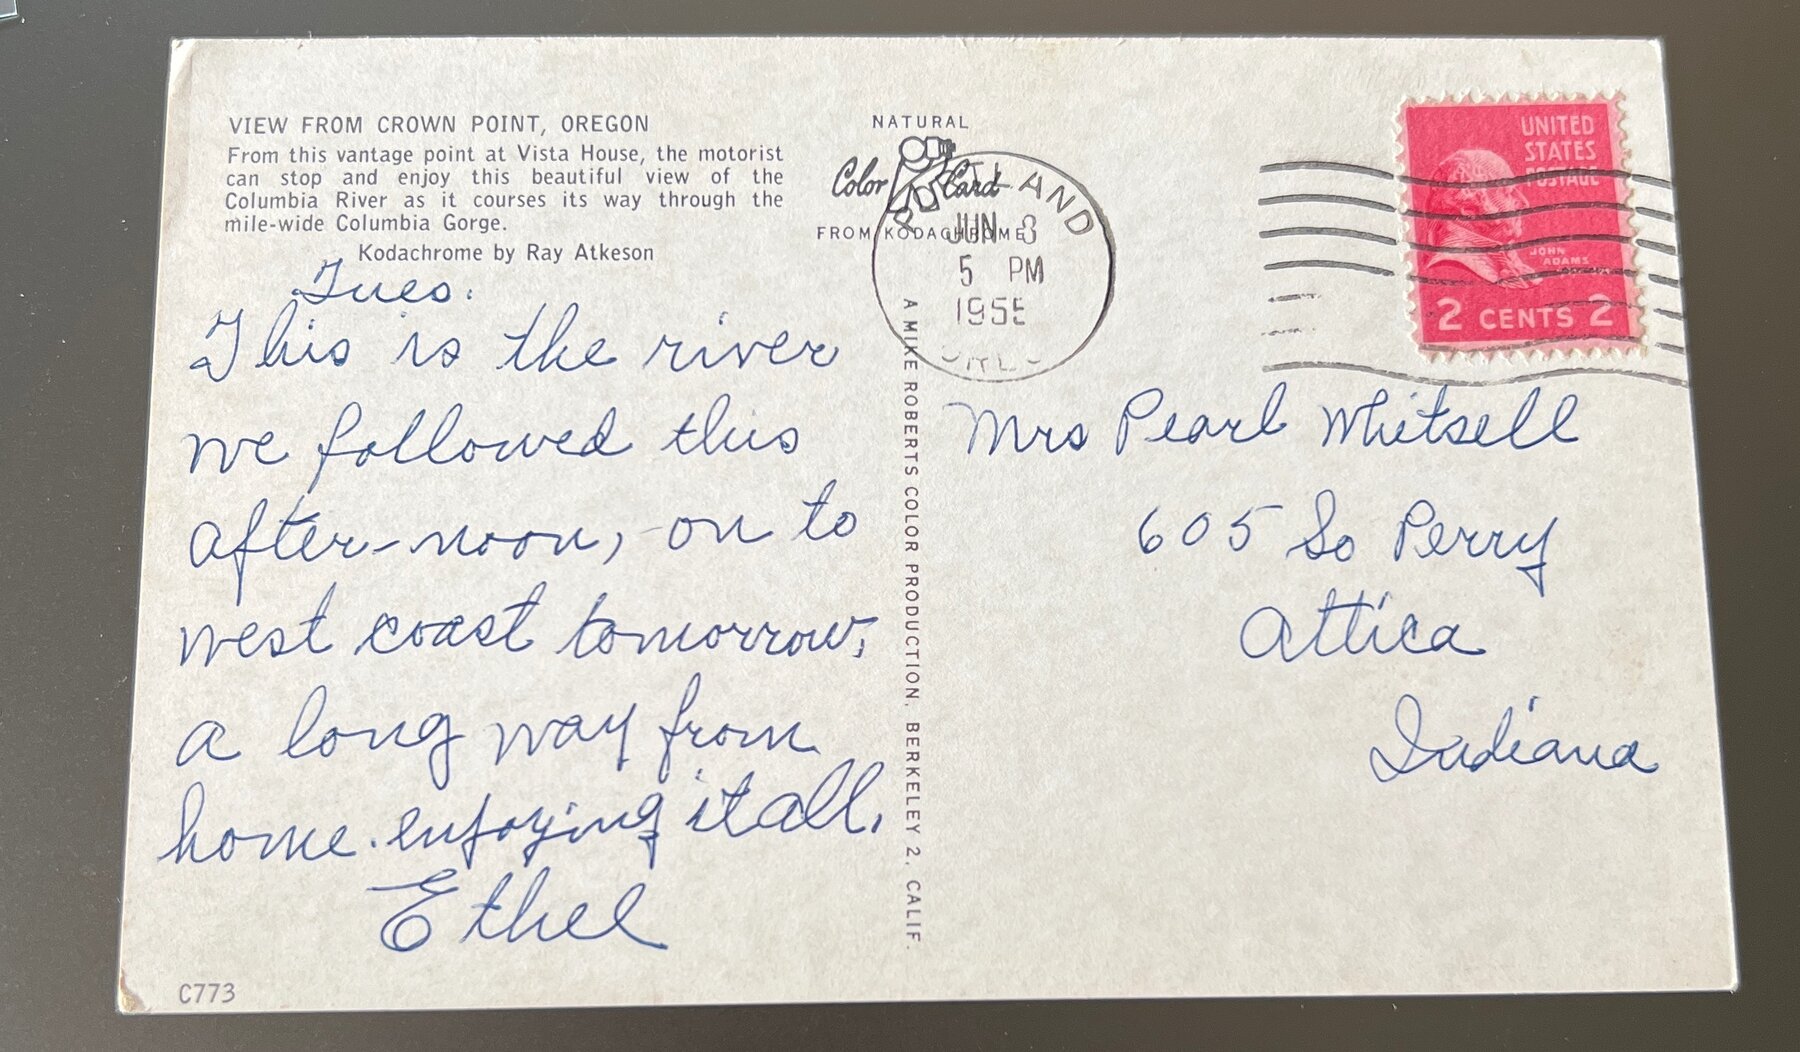 VIEW FROM CROWN POINT, OREGON
From this vantage point at Vista House, the motorist
can stop and enjoy this beautiful view of the
Columbia River as it courses its way through the
mile-wide Columbia Gorge.
Kodachrome by Ray Atkeson
Tues.
This is the river
we followed this
after-noon, on to
west coast tomorrow,
a long way from
home. enjoying it all.
Ethel
C773
NATURAL
Color Card
FROM KODACHROME
JUN 8
5 PM
1955
A MIKE ROBERTS COLOR PRODUCTION, BERKELEY 2, CALIF.
UNITED
STATES
POSTAGE
JOHN
ADAMS
2 CENTS 2
Mrs Pearl Whitsell
605 So Perry
Attica
Indiana